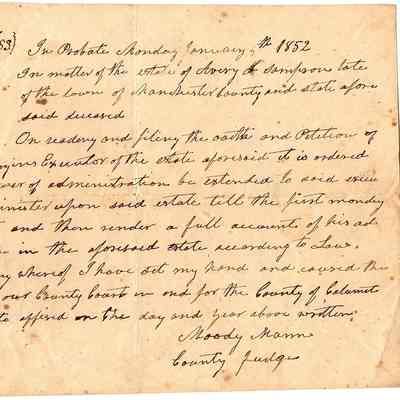 53)
In Probate Monday January 5th 1852
In matter of the estate of Avery H Sampson late
of the town of Manchester County and state afore
said deceased
On reading and filing the oath and Petition of
Executor of the estate aforesaid it is ordered
of administration be extended to said exec
minister upon said estate till the first monday
and then render a full account of his ad
in the aforesaid estate according to Law.
whereof I have set my hand and caused the
our County Court in and for the County of Calumet
to affixed on the day and year above written
Moody Mann
County Judge